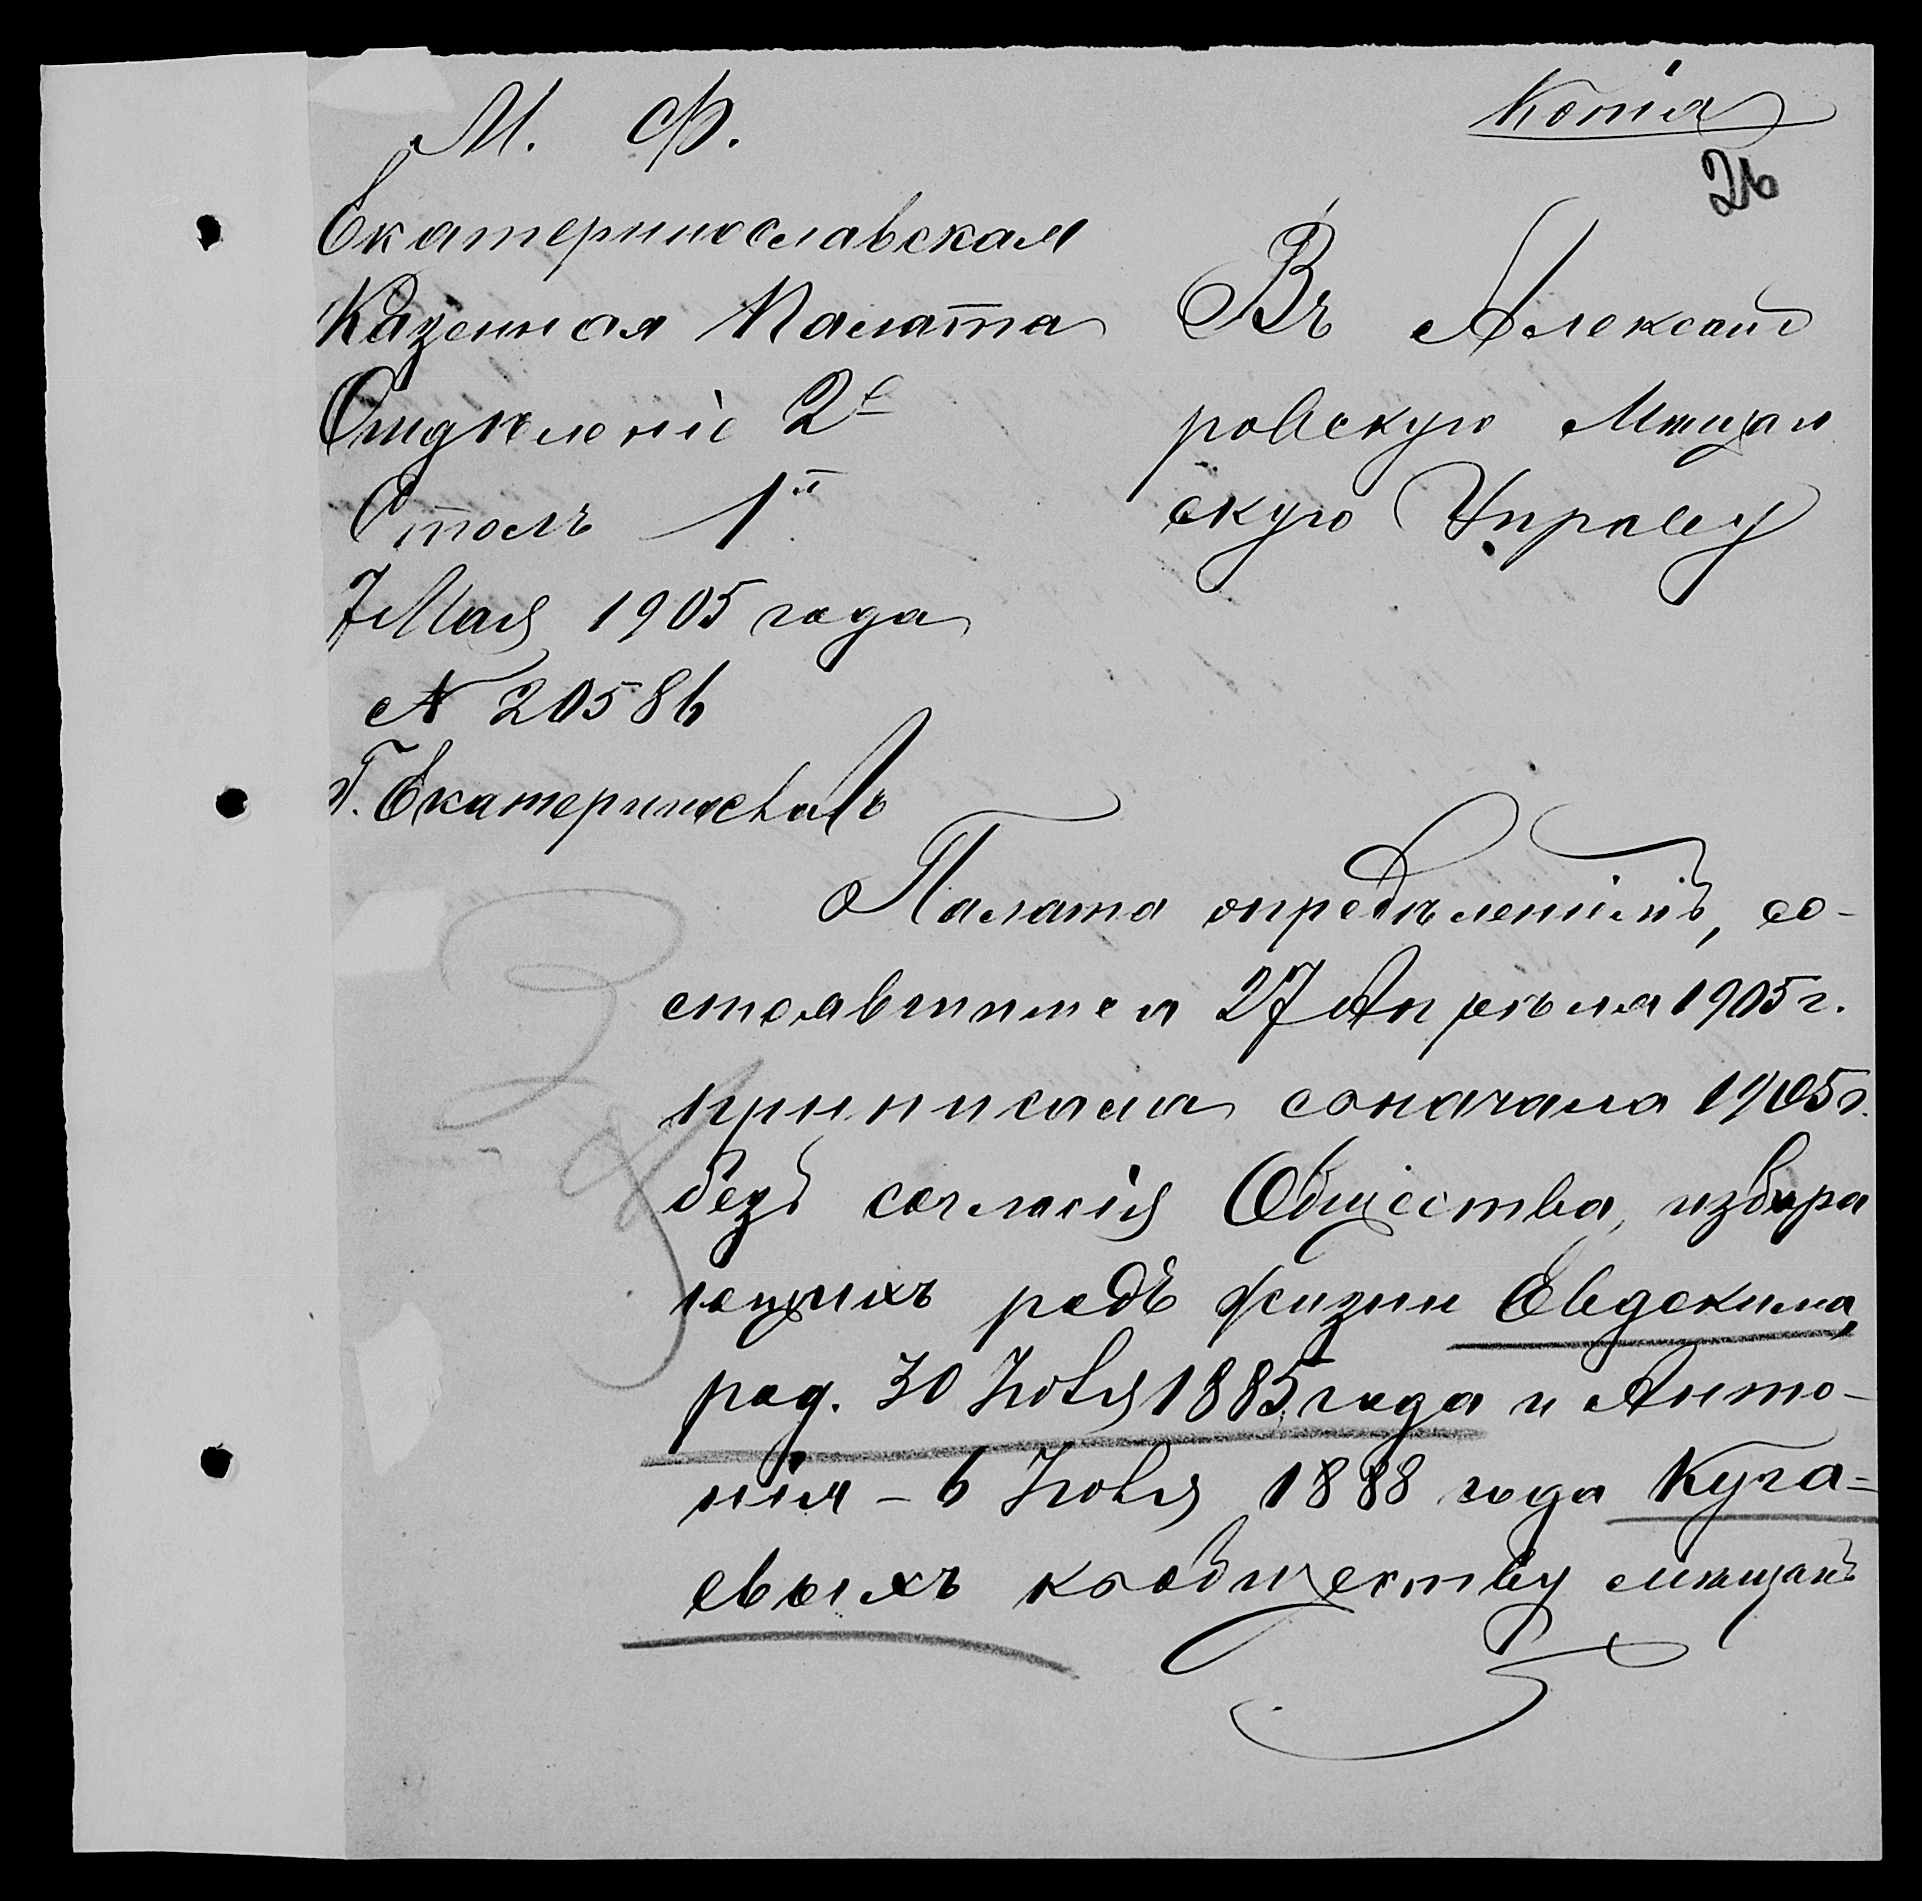 Копія
26
М. Ф.
Екатеринославская
Казенная Палата
Отдѣленіе 2е
Столъ 1й
7 Мая 1905 года
№ 20586
Г. Екатеринославъ
Въ Александ
ровскую Мѣщан
скую Управу
Палата опредѣленіемъ, со-
стоявшимся 27 Апрѣля 1905 г.
приписала съ начала 1905 г.
безъ согласія Общества, избира
ющихъ родъ жизни Евдокима,
род. 30 Іюля 1885 года и Анто-
нія - 6 Іюля 1888 года Куга=
евыхъ къ обществу мѣщанъ